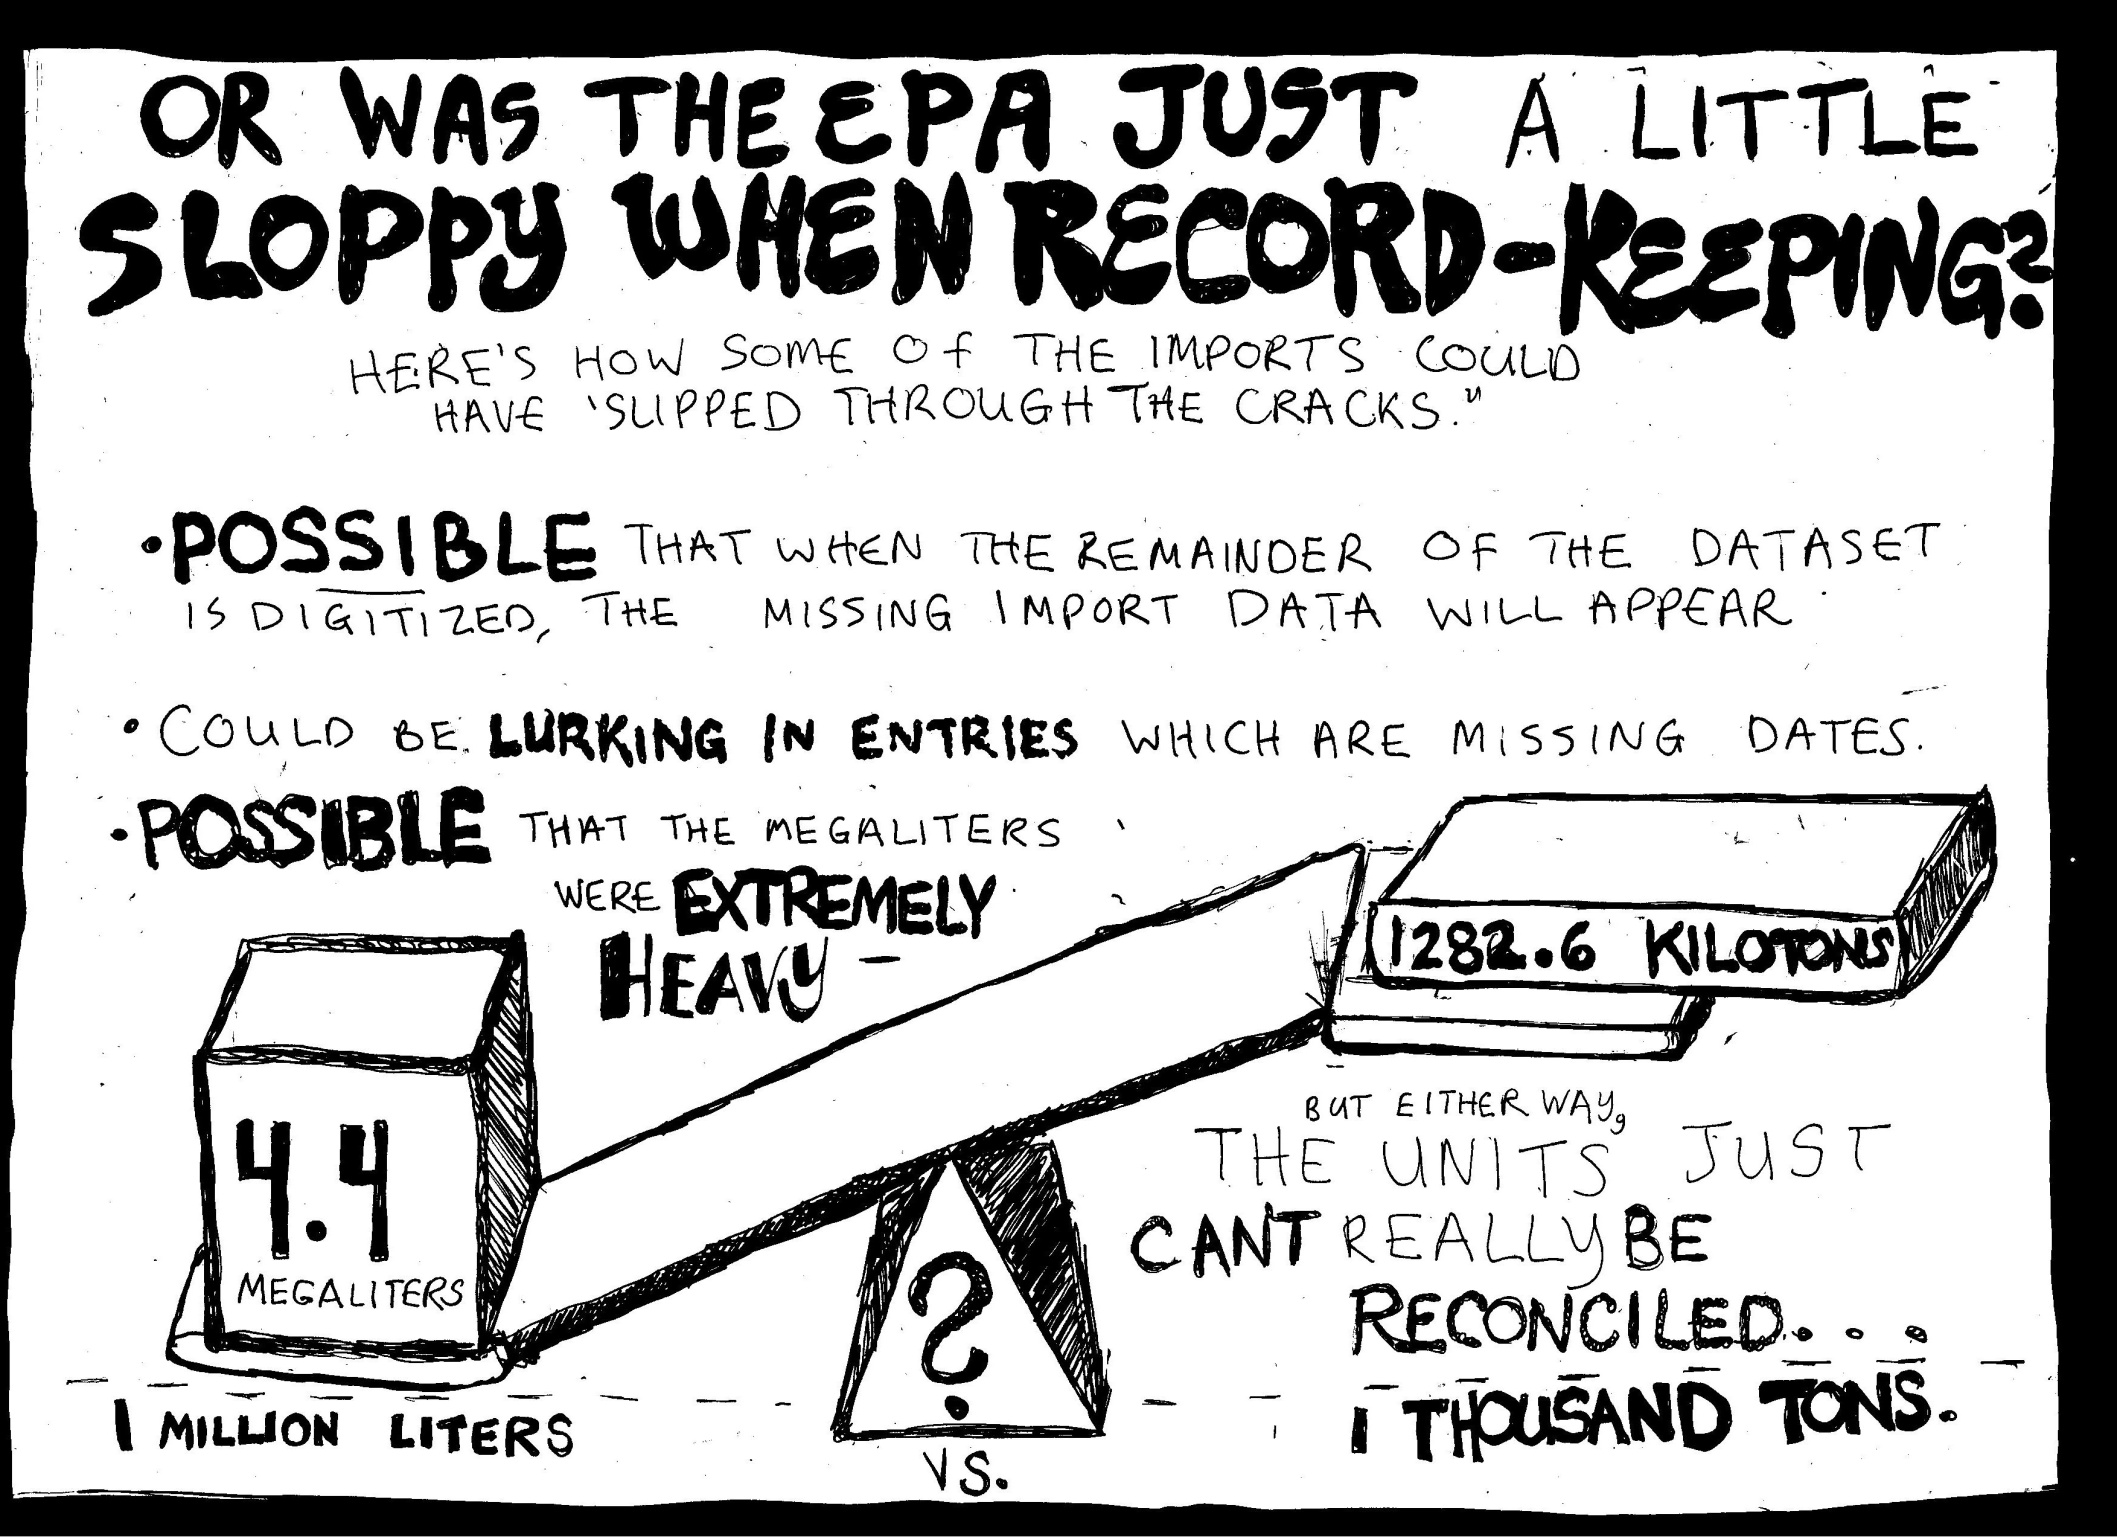 OR WAS THE EPA JUST A LITTLE
SLOPPY WHEN RECORD-KEEPING?
HERE'S HOW SOME OF THE IMPORTS COULD
HAVE 'SLIPPED THROUGH THE CRACKS."
•POSSIBLE THAT WHEN THE REMAINDER OF THE DATASET
IS DIGITIZED, THE MISSING IMPORT DATA WILL APPEAR
• COULD BE LURKING IN ENTRIES WHICH ARE MISSING DATES.
•POSSIBLE THAT THE MEGALITERS
WERE EXTREMELY
HEAVY –
1282.6 KILOTONS
4.4
MEGALITERS
?
BUT EITHER WAY,
THE UNITS JUST
CANT REALLY BE
RECONCILED...
1 MILLION LITERS
VS.
1 THOUSAND TONS.